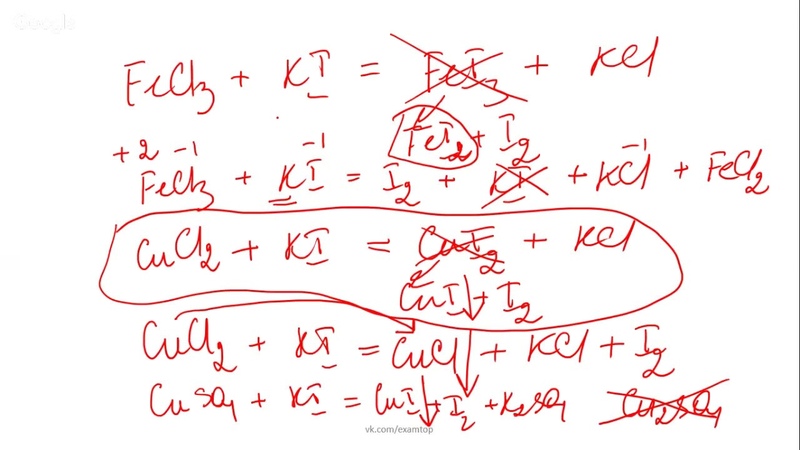 Google
FeCl3 + KI = FeI3 + KCl
FeI2 + I2
+2 -1 -1 -1
FeCl3 + KI = I2 + KI + KCl + FeCl2
CuCl2 + KI = CuI2 + KCl
CuI↓ + I2
CuCl2 + KI = CuCl↓ + KCl + I2
CuSO4 + KI = CuI↓ + I2 + K2SO4 Cu2SO4
vk.com/examtop